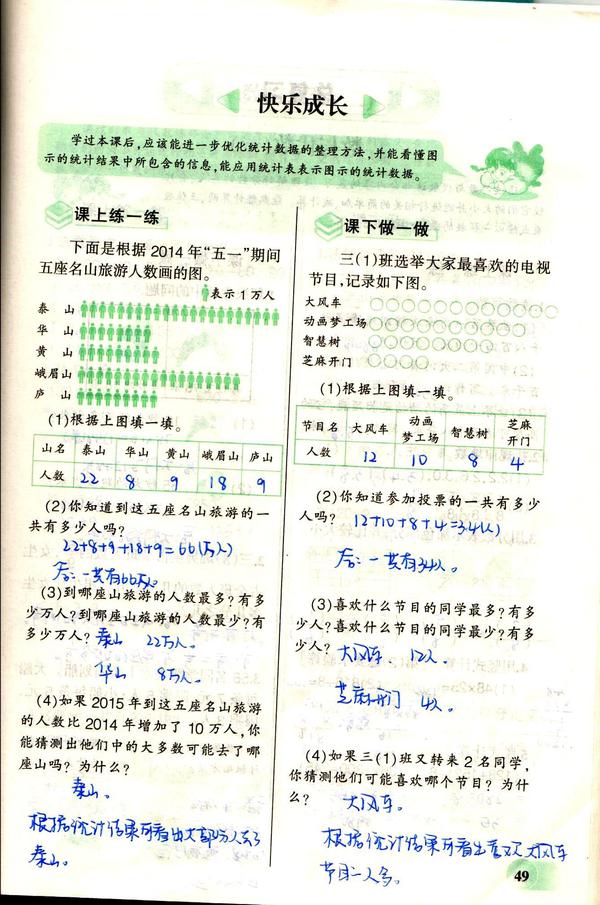 快乐成长
学过本课后,应该能进一步优化统计数据的整理方法,并能看懂图
示的统计结果中所包含的信息,能应用统计表表示图示的统计数据。
课上练一练
下面是根据2014年“五一”期间
五座名山旅游人数画的图。
表示1万人
泰 山
华 山
黄 山
峨眉山
庐 山
(1)根据上图填一填。
山名 泰山 华山 黄山 峨眉山 庐山
人数 22 8 9 18 9
(2)你知道到这五座名山旅游的一
共有多少人吗?
22+8+9+18+9=66(万人)
答:一共有66万人
(3)到哪座山旅游的人数最多?有多
少万人?到哪座山旅游的人数最少?有多
少万人? 泰山 22万人。
华山 8万人。
(4)如果2015年到这五座名山旅游
的人数比2014年增加了10万人,你
能猜测出他们中的大多数可能去了哪
座山吗?为什么?
泰山。
根据统计结果可看出大部分人去了
泰山。
课下做一做
三(1)班选举大家最喜欢的电视
节目,记录如下图。
大风车
动画梦工场
智慧树
芝麻开门
(1)根据上图填一填。
节目名 大风车 动画梦工场 智慧树 芝麻开门
人数 12 10 8 4
(2)你知道参加投票的一共有多少
人吗? 12+10+8+4=34(人)
答:一共有34人。
(3)喜欢什么节目的同学最多?有多
少人?喜欢什么节目的同学最少?有多
少人? 大风车。 12人。
芝麻开门 4人。
(4)如果三(1)班又转来2名同学,
你猜测他们可能喜欢哪个节目?为什
么? 大风车。
根据统计结果可看出喜欢大风车
节目人多。
49